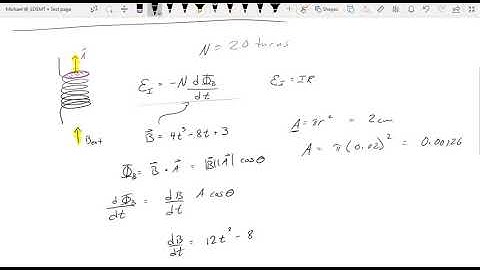 Michael @ EDEMT • Test page
Shapes
N = 20 turns
A⃗
ℰ_I = -N dΦ_B/dt
ℰ_I = IR
B⃗ = 4t³ - 8t + 3
A = πr² = 2cm
B⃗ext
A = π(0.02)² = 0.00126
Φ_B = B⃗ • A⃗ = |B⃗||A⃗| cosθ
dΦ_B/dt = dB/dt A cosθ
dB/dt = 12t² - 8